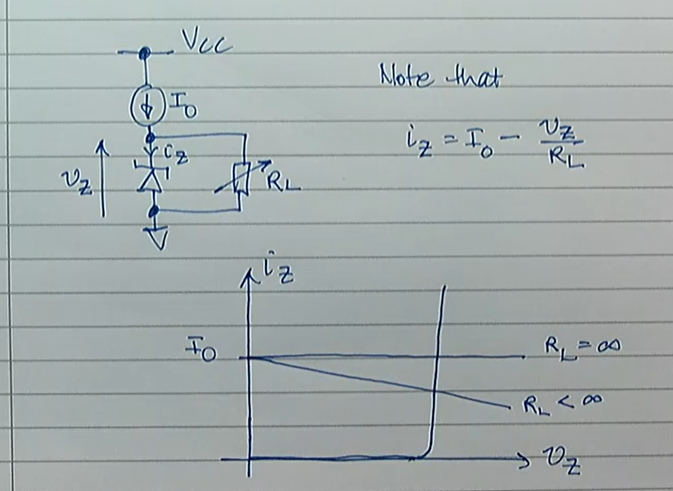 Vcc
I₀
i_z
v_z
R_L
Note that
i_z = I₀ - v_z/R_L
i_z
I₀
R_L = ∞
R_L < ∞
v_z